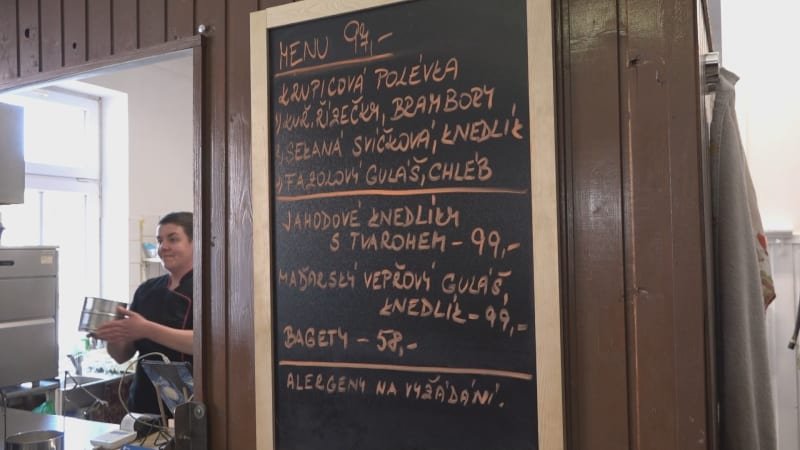 MENU 97,-
KRUPICOVÁ POLÉVKA
1) KUŘ. ŘÍZEČKY, BRAMBORY
2) SEKANÁ SVÍČKOVÁ, KNEDLÍK
3) FAZOLOVÝ GULÁŠ, CHLÉB
JAHODOVÉ KNEDLÍKY
S TVAROHEM - 99,-
MAĎARSKÝ VEPŘOVÝ GULÁŠ,
KNEDLÍK - 99,-
BAGETY - 58,-
ALERGENY NA VYŽÁDÁNÍ.